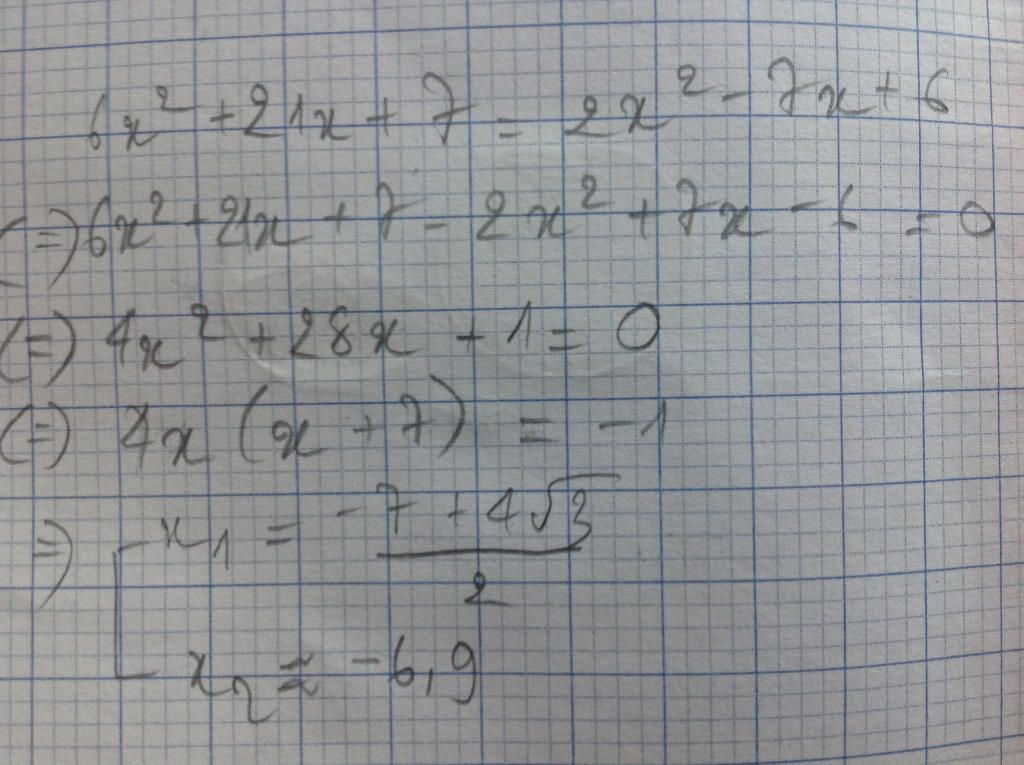 6x² + 21x + 7 = 2x² - 7x + 6
(=) 6x² + 21x + 7 - 2x² + 7x - 6 = 0
(=) 4x² + 28x + 1 = 0
(=) 4x (x + 7) = -1
=) [ x₁ = (-7 + 4√3)/2
x₂ ≈ -6,9